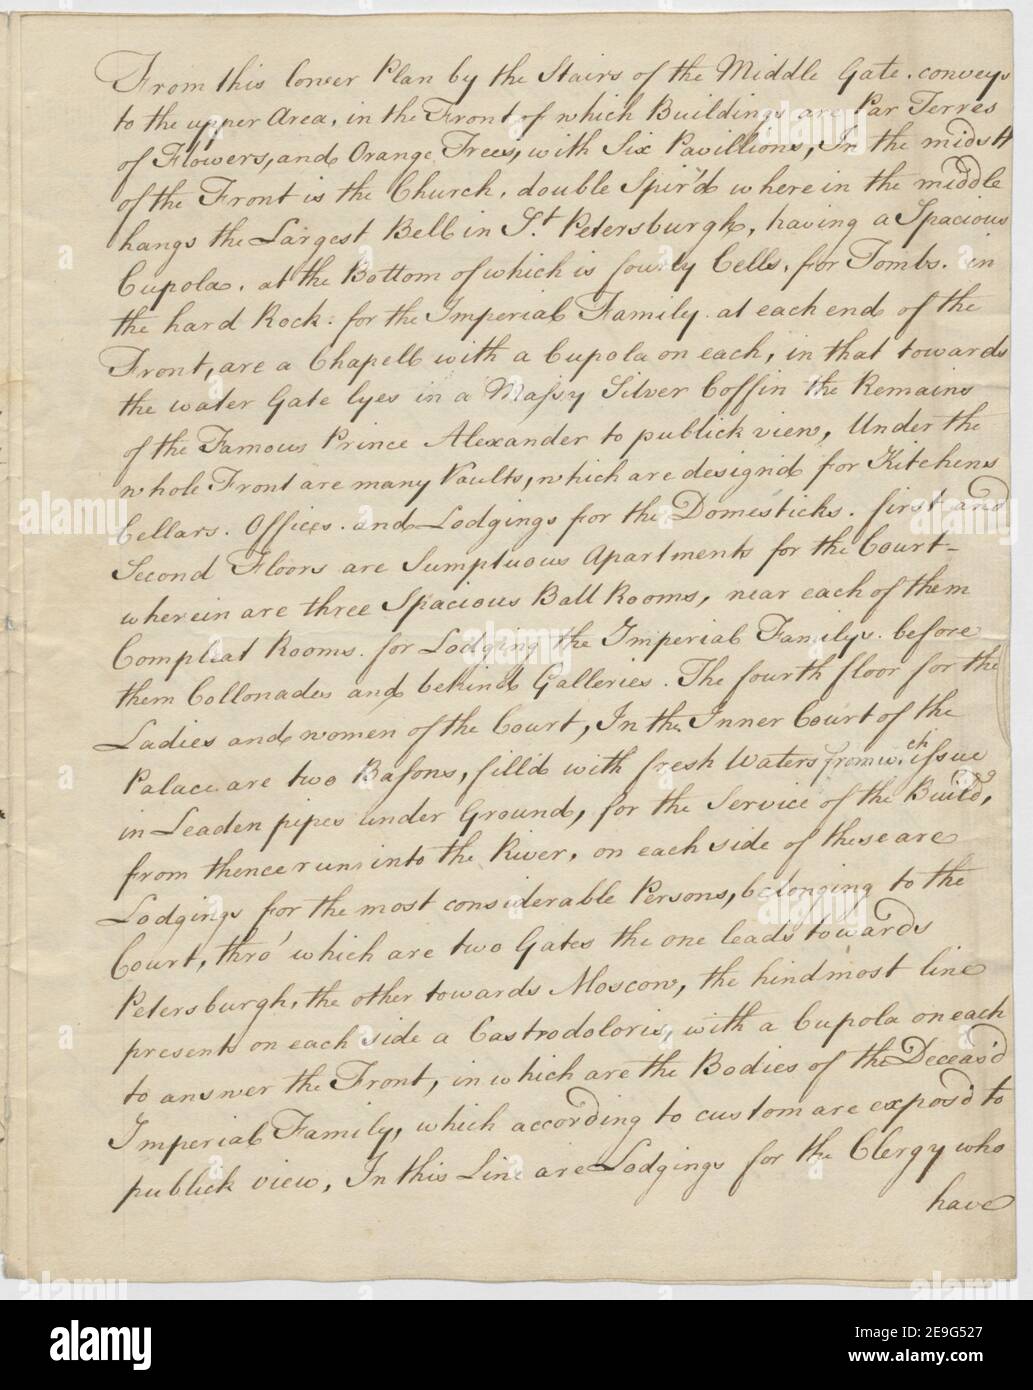 From this lower Plan by the Stairs of the Middle Gate. conveys
to the upper Area, in the Front of which Buildings are Par Terres
of Flowers, and Orange Trees, with Six Pavillions, In the midst
of the Front is the Church. double Spir'd where in the middle
hangs the Largest Bell in St Petersburgh, having a Spacious
Cupola. at the Bottom of which is fourty Cells, for Tombs. in
the hard Rock. for the Imperial Family. at each end of the
Front, are a Chapell with a Cupola on each, in that towards
the water Gate lyes in a Massy Silver Coffin the Remains
of the Famous Prince Alexander to publick view, Under the
whole Front are many Vaults, which are design'd for Kitchens
Cellars. Offices. and Lodgings for the Domesticks. first and
Second Floors are Sumptuous Apartments for the Court-
wherein are three Spacious Ball Rooms, near each of them
Compleat Rooms. for Lodging the Imperial Familys. before
them Collonades and behind Galleries. The fourth floor for the
Ladies and women of the Court, In the Inner Court of the
Palace are two Basons, fill'd with fresh Waters from wch issue
in Leaden pipes under Ground, for the Service of the Buildgs,
from thence runs into the River, on each side of these are
Lodgings for the most considerable Persons, belonging to the
Court, thro' which are two Gates the one leads towards
Petersburgh, the other towards Moscow, the hindmost line
presents on each side a Castrodoloris, with a Cupola on each
to answer the Front, in which are the Bodies of the Deceas'd
Imperial Family, which according to custom are expos'd to
publick view, In this Line are Lodgings for the Clergy who
have
alamy
Image ID: 2E9G527
www.alamy.com